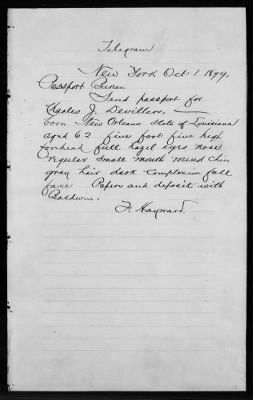 Telegram
New York Oct 1 1899.
Passport Bureau
Send passport for
Charles J. Devillers, —
born New Orleans State of Louisiana
aged 62 five foot five high
forehead full hazel eyes nose
regular small mouth round chin
gray hair dark complexion full
face Papers and deposit with
Baldwin.
F. Hayward.